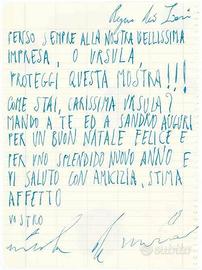 PENSO SEMPRE ALLA NOSTRA BELLISSIMA
IMPRESA, O URSULA,
PROTEGGI QUESTA MOSTRA!!!
COME STAI, CARISSIMA URSULA?
MANDO A TE ED A SANDRO AUGURI
PER UN BUON NATALE FELICE E
PER UNO SPLENDIDO NUOVO ANNO E
VI SALUTO CON AMICIZIA, STIMA
AFFETTO
VOSTRO
subito